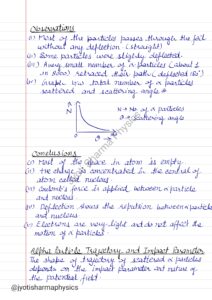 Observations
(i) Most of the particles passes through the foil
without any deflection (straight)
(ii) Some particles were slightly deflected.
(iii) A very small number of α particles (about 1
in 8000) retraced their path (deflected 180°)
(iv) Graph b/w total number of α particles
scattered and scattering angle θ
N
N → No of α particles
θ → scattering angle
θ
Conclusions
(i) Most of the space in atom is empty.
(ii) +ve charge is concentrated in the central of
atom called nucleus
(iii) Coulomb's force is applied between α particle
and nucleus
(iv) Deflection shows the repulsion between α particle
and nucleus
(v) Electrons are very light and do not affect the
motion of α particles
Alpha Particle Trajectory and Impact Parameter
The shape of trajectory of scattered α particles
depends on the impact parameter and nature of
the potential field.
@jyotisharmaphysics